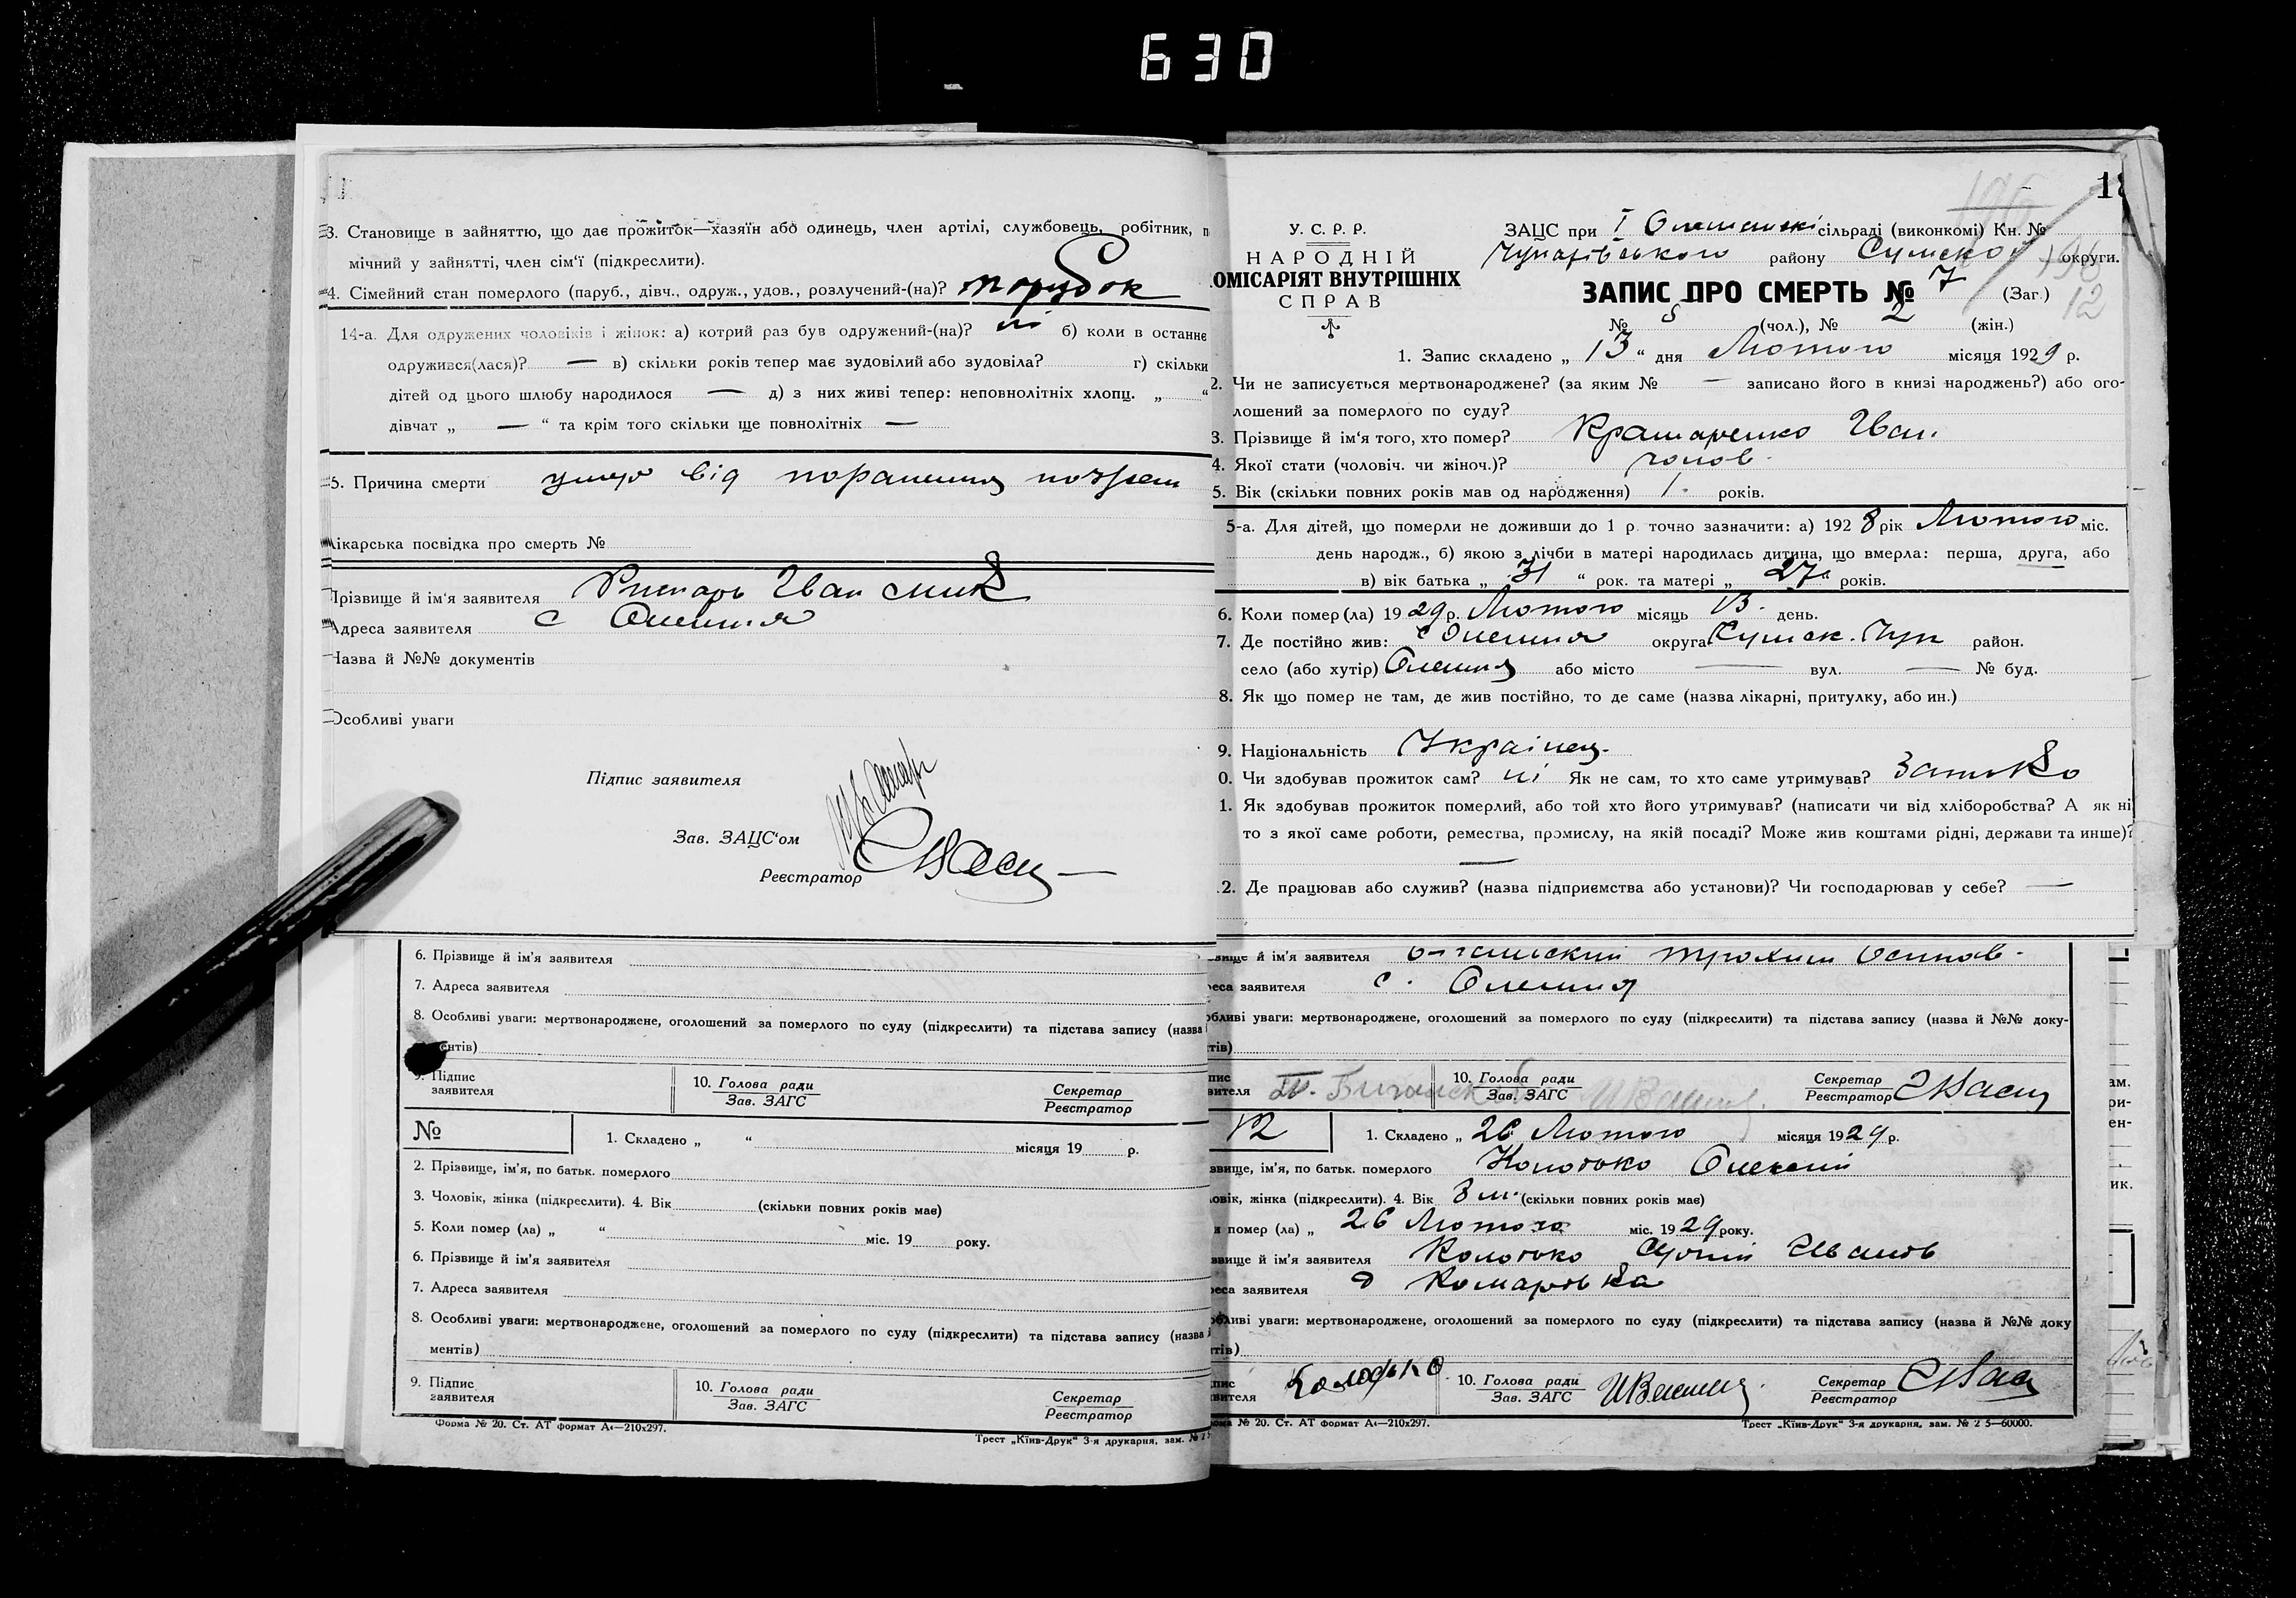 630
3. Становище в зайняттю, що дає прожиток—хазяїн або одинець, член артілі, службовець, робітник, п
мічний у зайнятті, член сім'ї (підкреслити).
4. Сімейний стан померлого (паруб., дівч., одруж., удов., розлучений-(на)? парубок
14-а. Для одружених чоловіків і жінок: а) котрий раз був одружений-(на)? ні б) коли в останнє
одружився(лася)? — в) скільки років тепер має зудовілий або зудовіла? г) скільки
дітей од цього шлюбу народилося — д) з них живі тепер: неповнолітніх хлопц. „ “
дівчат „ — “ та крім того скільки ще повнолітніх —
5. Причина смерти умер від поранення
лікарська посвідка про смерть №
Прізвище й ім'я заявителя Іван
Адреса заявителя с Олешня
Назва й №№ документів
Особливі уваги
Підпис заявителя
Зав. ЗАЦС'ом
Реєстратор
6. Прізвище й ім'я заявителя
7. Адреса заявителя
8. Особливі уваги: мертвонароджене, оголошений за померлого по суду (підкреслити) та підстава запису (назва
ментів)
9. Підпис заявителя 10. Голова ради Зав. ЗАГС Секретар Реєстратор
№ 1. Складено „ “ місяця 19 р.
2. Прізвище, ім'я, по батьк. померлого
3. Чоловік, жінка (підкреслити). 4. Вік (скільки повних років має)
5. Коли помер (ла) „ “ міс. 19 року.
6. Прізвище й ім'я заявителя
7. Адреса заявителя
8. Особливі уваги: мертвонароджене, оголошений за померлого по суду (підкреслити) та підстава запису (назва й
ментів)
9. Підпис заявителя 10. Голова ради Зав. ЗАГС Секретар Реєстратор
Форма № 20. Ст. АТ формат А4—210х297.
Трест „Київ-Друк“ 3-я друкарня, зам. №
18
У. С. Р. Р.
НАРОДНІЙ
КОМІСАРІЯТ ВНУТРІШНІХ
СПРАВ
ЗАЦС при І Олешанскі сільраді (виконкомі) Кн. №
Чупахівського району Сумской округи.
ЗАПИС ПРО СМЕРТЬ № 7 (Заг.)
12
№ 5 (чол.), № 2 (жін.)
1. Запис складено „ 13 “ дня Лютого місяця 1929 р.
2. Чи не записується мертвонароджене? (за яким № — записано його в книзі народжень?) або ого-
лошений за померлого по суду?
3. Прізвище й ім'я того, хто помер? Крамаренко Іван.
4. Якої стати (чоловіч. чи жіноч.)? чолов.
5. Вік (скільки повних років мав од народження) 1. років.
5-а. Для дітей, що померли не доживши до 1 р. точно зазначити: а) 1928 рік Лютого міс.
день народж., б) якою з лічби в матері народилась дитина, що вмерла: перша, друга, або
в) вік батька „ 31 “ рок. та матері „ 27 “ років.
6. Коли помер (ла) 1929 р. Лютого місяць 13. день.
7. Де постійно жив: с Олешня округа Сумск. Чуп район.
село (або хутір) Олешня або місто — вул. — № буд.
8. Як що помер не там, де жив постійно, то де саме (назва лікарні, притулку, або ин.)
9. Національність Українец.
0. Чи здобував прожиток сам? ні Як не сам, то хто саме утримував? Батько
1. Як здобував прожиток померлий, або той хто його утримував? (написати чи від хліборобства? А як ні
то з якої саме роботи, ремества, промислу, на якій посаді? Може жив коштами рідні, держави та инше)?
—
2. Де працював або служив? (назва підприємства або установи)? Чи господарював у себе? —
звище й ім'я заявителя Трохим Осипов.
реса заявителя с. Олешня
обливі уваги: мертвонароджене, оголошений за померлого по суду (підкреслити) та підстава запису (назва й №№ доку-
тів)
пис вителя 10. Голова ради Зав. ЗАГС Секретар Реєстратор
12 1. Складено „ 26 Лютого місяця 1929 р.
звище, ім'я, по батьк. померлого Колотько Олексій
ловік, жінка (підкреслити). 4. Вік 3 м. (скільки повних років має)
и помер (ла) „ 26 Лютого міс. 1929 року.
звище й ім'я заявителя Колотько Іванов
реса заявителя Комаровка
обливі уваги: мертвонароджене, оголошений за померлого по суду (підкреслити) та підстава запису (назва й №№ доку
тів)
пис вителя 10. Голова ради Зав. ЗАГС Секретар Реєстратор
рма № 20. Ст. АТ формат А4—210х297.
Трест „Київ-Друк“ 3-я друкарня, зам. № 2 5—60000.